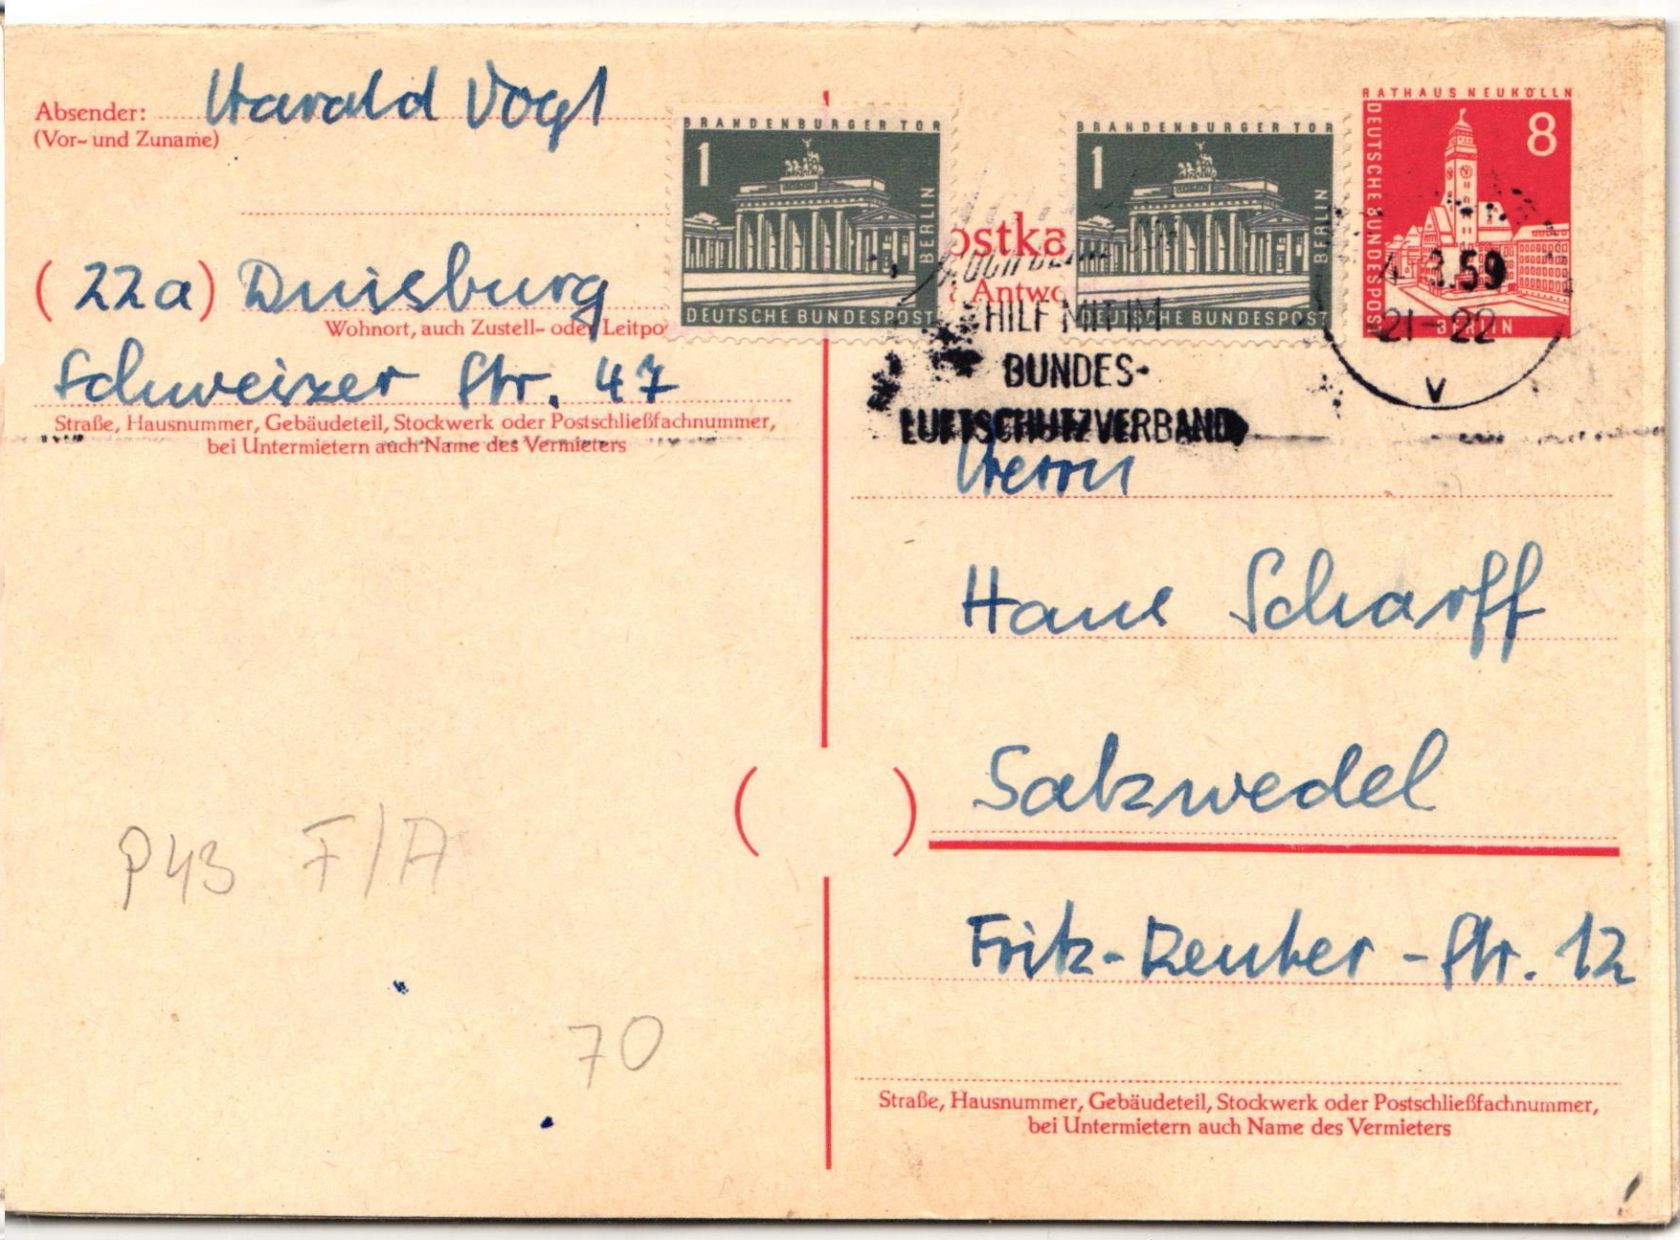 Absender: Harald Vogl
(Vor- und Zuname)
(22a) Duisburg
Wohnort, auch Zustell- oder Leitpo
Schweizer Str. 47
Straße, Hausnummer, Gebäudeteil, Stockwerk oder Postschließfachnummer,
bei Untermietern auch Name des Vermieters
P43 F/A
70
BRANDENBURGER TOR
1
BERLIN
DEUTSCHE BUNDESPOST
ostka
Antwo
BRANDENBURGER TOR
1
BERLIN
DEUTSCHE BUNDESPOST
RATHAUS NEUKÖLLN
8
DEUTSCHE BUNDESPOST
BERLIN
3.59
21-22
V
HILF MIT IM
BUNDES-
LUFTSCHUTZVERBAND
Herrn
Hans Scharff
Salzwedel
Fritz-Reuter-Str. 12
Straße, Hausnummer, Gebäudeteil, Stockwerk oder Postschließfachnummer,
bei Untermietern auch Name des Vermieters